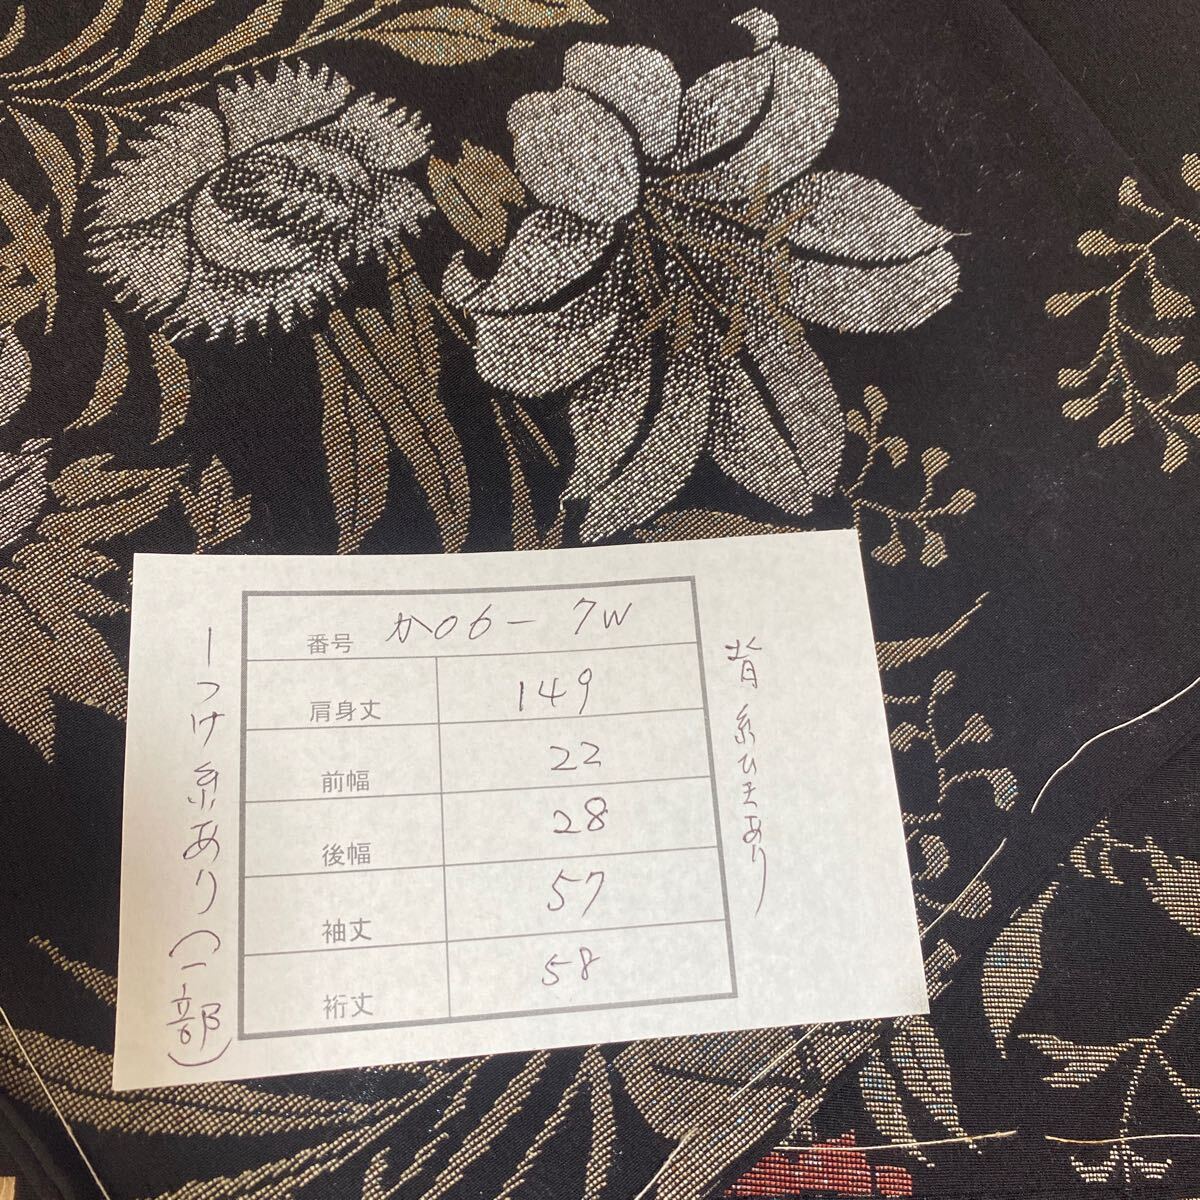 番号 か06- 7W
肩身丈 149
前幅 22
後幅 28
袖丈 57
裄丈 58
背 糸ひきあり
しつけ糸あり(一部)